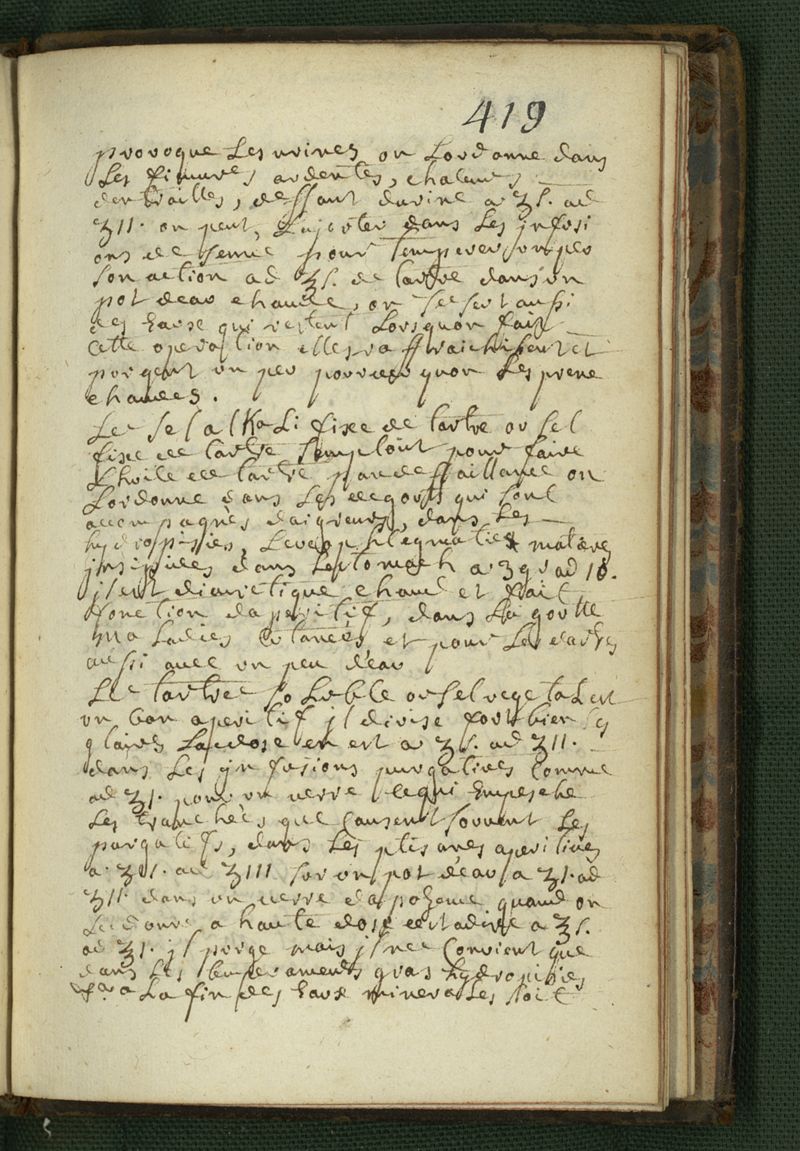 419
provoque Les urines on Lordonne dans
Les fievures ardentes, chaleurs
dentrailles, deffaut durine a ʒs. ad
ʒII. on peut Lajouter dans Les jnfusi
ons de senné pour temperer un peu
son action ad ʒs. de tartre dans un
pot deau chaude, on sesert aussi
des Eaux qui restent Lorsquon fait
cette operation elles raffraichissent et
purgent un peu pourveu quon Les prene
chaudes.
Le sel alKali fixe de tartre ou sel
fixe de tartre semploit pour faire
Lhuile de tartre par deffaillance on
Lordonne dans Les degouts qui sont
accompagnés daigreurs, dans Les
hydropisies, Leucophlegmaties matieres
jnsipides dans Lestomach a ad
jl est diuretique chaud et fait
fonction daperitif, dans La goutte
maladies Cutaneés, et pour Les dartres
aussi avec un peu deau
Le tartre soluble ou sel vegetal est
un bon aperitif jl divise fort bien Les
glaires La dose en est a ʒs. ad ʒII.
dans Les jnfusions purgatives Comme
ad ʒI. pour un verre ce qui Empesche
Les tranchées que Causent souvent Les
purgatifs, dans Les ptisanes aperitives
a ad ʒIII sur un pot deau a ʒI. ad
ʒII. dans un verre dapozeme quand on
Le donne a haute dose cestadire a
ad jl purge mais jl ne Convient que
dans Les temperaments gras hydropisies
a La fin des Eaux minerales soit